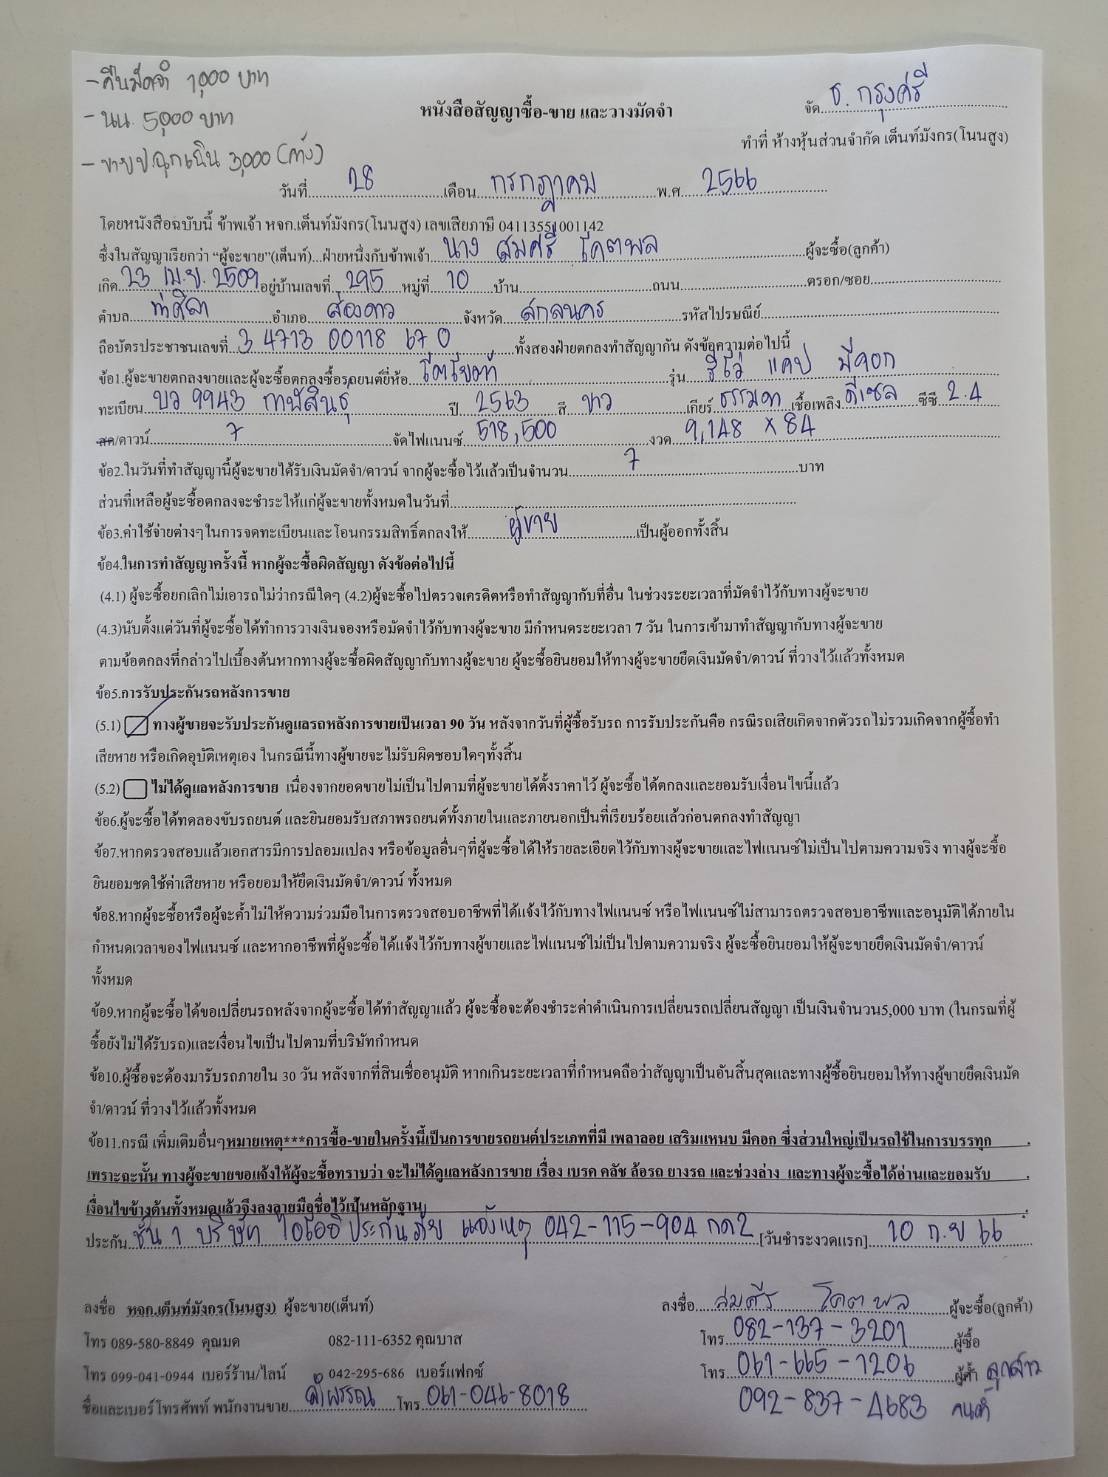 - คืนมัดจำ 1,000 บาท
- นน. 5,000 บาท
- ขายป้ 3,000
หนังสือสัญญาซื้อ-ขาย และวางมัดจำ
จัด ธ. กรุงศรี
ทำที่ ห้างหุ้นส่วนจำกัด เต็นท์มังกร(โนนสูง)
วันที่ 28 เดือน กรกฎาคม พ.ศ. 2566
โดยหนังสือฉบับนี้ ข้าพเจ้า หจก.เต็นท์มังกร(โนนสูง) เลขเสียภาษี 0411355l001142
ซึ่งในสัญญาเรียกว่า “ผู้จะขาย”(เต็นท์)...ฝ่ายหนึ่งกับข้าพเจ้า นาง สมศรี โคตพล ผู้จะซื้อ(ลูกค้า)
เกิด 23 เม.ย. 2509 อยู่บ้านเลขที่ 295 หมู่ที่ 10 บ้าน ถนน ตรอก/ซอย
ตำบล ท่าศิลา อำเภอ ส่องดาว จังหวัด สกลนคร รหัสไปรษณีย์
ถือบัตรประชาชนเลขที่ 3 4713 00118 67 0 ทั้งสองฝ่ายตกลงทำสัญญากัน ดังข้อความต่อไปนี้
ข้อ1.ผู้จะขายตกลงขายและผู้จะซื้อตกลงซื้อรถยนต์ยี่ห้อ โตโยต้า รุ่น รีโว่ แคป มีจอก
ทะเบียน บว 9943 กาฬสินธุ์ ปี 2563 สี ขาว เกียร์ ธรรมดา เชื้อเพลิง ดีเซล ซีซี 2.4
สด/ดาวน์ 7 จัดไฟแนนซ์ 518,500 งวด 9,148 x 84
ข้อ2.ในวันที่ทำสัญญานี้ผู้จะขายได้รับเงินมัดจำ/ดาวน์ จากผู้จะซื้อไว้แล้วเป็นจำนวน 7 บาท
ส่วนที่เหลือผู้จะซื้อตกลงจะชำระให้แก่ผู้จะขายทั้งหมดในวันที่
ข้อ3.ค่าใช้จ่ายต่างๆในการจดทะเบียนและโอนกรรมสิทธิ์ตกลงให้ ผู้ขาย เป็นผู้ออกทั้งสิ้น
ข้อ4.ในการทำสัญญาครั้งนี้ หากผู้จะซื้อผิดสัญญา ดังข้อต่อไปนี้
(4.1) ผู้จะซื้อยกเลิกไม่เอารถไม่ว่ากรณีใดๆ (4.2)ผู้จะซื้อไปตรวจเครดิตหรือทำสัญญากับที่อื่น ในช่วงระยะเวลาที่มัดจำไว้กับทางผู้จะขาย
(4.3)นับตั้งแต่วันที่ผู้จะซื้อได้ทำการวางเงินจองหรือมัดจำไว้กับทางผู้จะขาย มีกำหนดระยะเวลา 7 วัน ในการเข้ามาทำสัญญากับทางผู้จะขาย
ตามข้อตกลงที่กล่าวไปเบื้องต้นหากทางผู้จะซื้อผิดสัญญากับทางผู้จะขาย ผู้จะซื้อยินยอมให้ทางผู้จะขายยึดเงินมัดจำ/ดาวน์ ที่วางไว้แล้วทั้งหมด
ข้อ5.การรับประกันรถหลังการขาย
(5.1) ทางผู้ขายจะรับประกันดูแลรถหลังการขายเป็นเวลา 90 วัน หลังจากวันที่ผู้ซื้อรับรถ การรับประกันคือ กรณีรถเสียเกิดจากตัวรถไม่รวมเกิดจากผู้ซื้อทำ
เสียหาย หรือเกิดอุบัติเหตุเอง ในกรณีนี้ทางผู้ขายจะไม่รับผิดชอบใดๆทั้งสิ้น
(5.2) ไม่ได้ดูแลหลังการขาย เนื่องจากยอดขายไม่เป็นไปตามที่ผู้จะขายได้ตั้งราคาไว้ ผู้จะซื้อได้ตกลงและยอมรับเงื่อนไขนี้แล้ว
ข้อ6.ผู้จะซื้อได้ทดลองขับรถยนต์ และยินยอมรับสภาพรถยนต์ทั้งภายในและภายนอกเป็นที่เรียบร้อยแล้วก่อนตกลงทำสัญญา
ข้อ7.หากตรวจสอบแล้วเอกสารมีการปลอมแปลง หรือข้อมูลอื่นๆที่ผู้จะซื้อได้ให้รายละเอียดไว้กับทางผู้จะขายและไฟแนนซ์ไม่เป็นไปตามความจริง ทางผู้จะซื้อ
ยินยอมชดใช้ค่าเสียหาย หรือยอมให้ยึดเงินมัดจำ/ดาวน์ ทั้งหมด
ข้อ8.หากผู้จะซื้อหรือผู้จะค้ำไม่ให้ความร่วมมือในการตรวจสอบอาชีพที่ได้แจ้งไว้กับทางไฟแนนซ์ หรือไฟแนนซ์ไม่สามารถตรวจสอบอาชีพและอนุมัติได้ภายใน
กำหนดเวลาของไฟแนนซ์ และหากอาชีพที่ผู้จะซื้อได้แจ้งไว้กับทางผู้ขายและไฟแนนซ์ไม่เป็นไปตามความจริง ผู้จะซื้อยินยอมให้ผู้จะขายยึดเงินมัดจำ/ดาวน์
ทั้งหมด
ข้อ9.หากผู้จะซื้อได้ขอเปลี่ยนรถหลังจากผู้จะซื้อได้ทำสัญญาแล้ว ผู้จะซื้อจะต้องชำระค่าดำเนินการเปลี่ยนรถเปลี่ยนสัญญา เป็นเงินจำนวน5,000 บาท (ในกรณที่ผู้
ซื้อยังไม่ได้รับรถ)และเงื่อนไขเป็นไปตามที่บริษัทกำหนด
ข้อ10.ผู้ซื้อจะต้องมารับรถภายใน 30 วัน หลังจากที่สินเชื่ออนุมัติ หากเกินระยะเวลาที่กำหนดถือว่าสัญญาเป็นอันสิ้นสุดและทางผู้ซื้อยินยอมให้ทางผู้ขายยึดเงินมัด
จำ/ดาวน์ ที่วางไว้แล้วทั้งหมด
ข้อ11.กรณี เพิ่มเติมอื่นๆหมายเหตุ***การซื้อ-ขายในครั้งนี้เป็นการขายรถยนต์ประเภทที่มี เพลาลอย เสริมแหนบ มีคอก ซึ่งส่วนใหญ่เป็นรถใช้ในการบรรทุก
เพราะฉะนั้น ทางผู้จะขายขอแจ้งให้ผู้จะซื้อทราบว่า จะไม่ได้ดูแลหลังการขาย เรื่อง เบรค คลัช ล้อรถ ยางรถ และช่วงล่าง และทางผู้จะซื้อได้อ่านและยอมรับ
เงื่อนไขข้างต้นทั้งหมดแล้วจึงลงลายมือชื่อไว้เป็นหลักฐาน
ประกัน ชั้น 1 บริษัท ไอโออิ ประกันภัย แจ้งเหตุ 042-115-904 กด2 [วันชำระงวดแรก] 10 ก.ย 66
ลงชื่อ หจก.เต็นท์มังกร(โนนสูง) ผู้จะขาย(เต็นท์) ลงชื่อ สมศรี โคตพล ผู้จะซื้อ(ลูกค้า)
โทร 089-580-8849 คุณมด 082-111-6352 คุณบาส โทร 082-137-3201 ผู้ซื้อ
โทร 099-041-0944 เบอร์ร้าน/ไลน์ 042-295-686 เบอร์แฟกซ์ โทร 061-665-1206 ผู้ค้ำ ลูกสาว
ชื่อและเบอร์โทรศัพท์ พนักงานขาย โทร 061-046-8018 092-837-4683 คนค้ำ